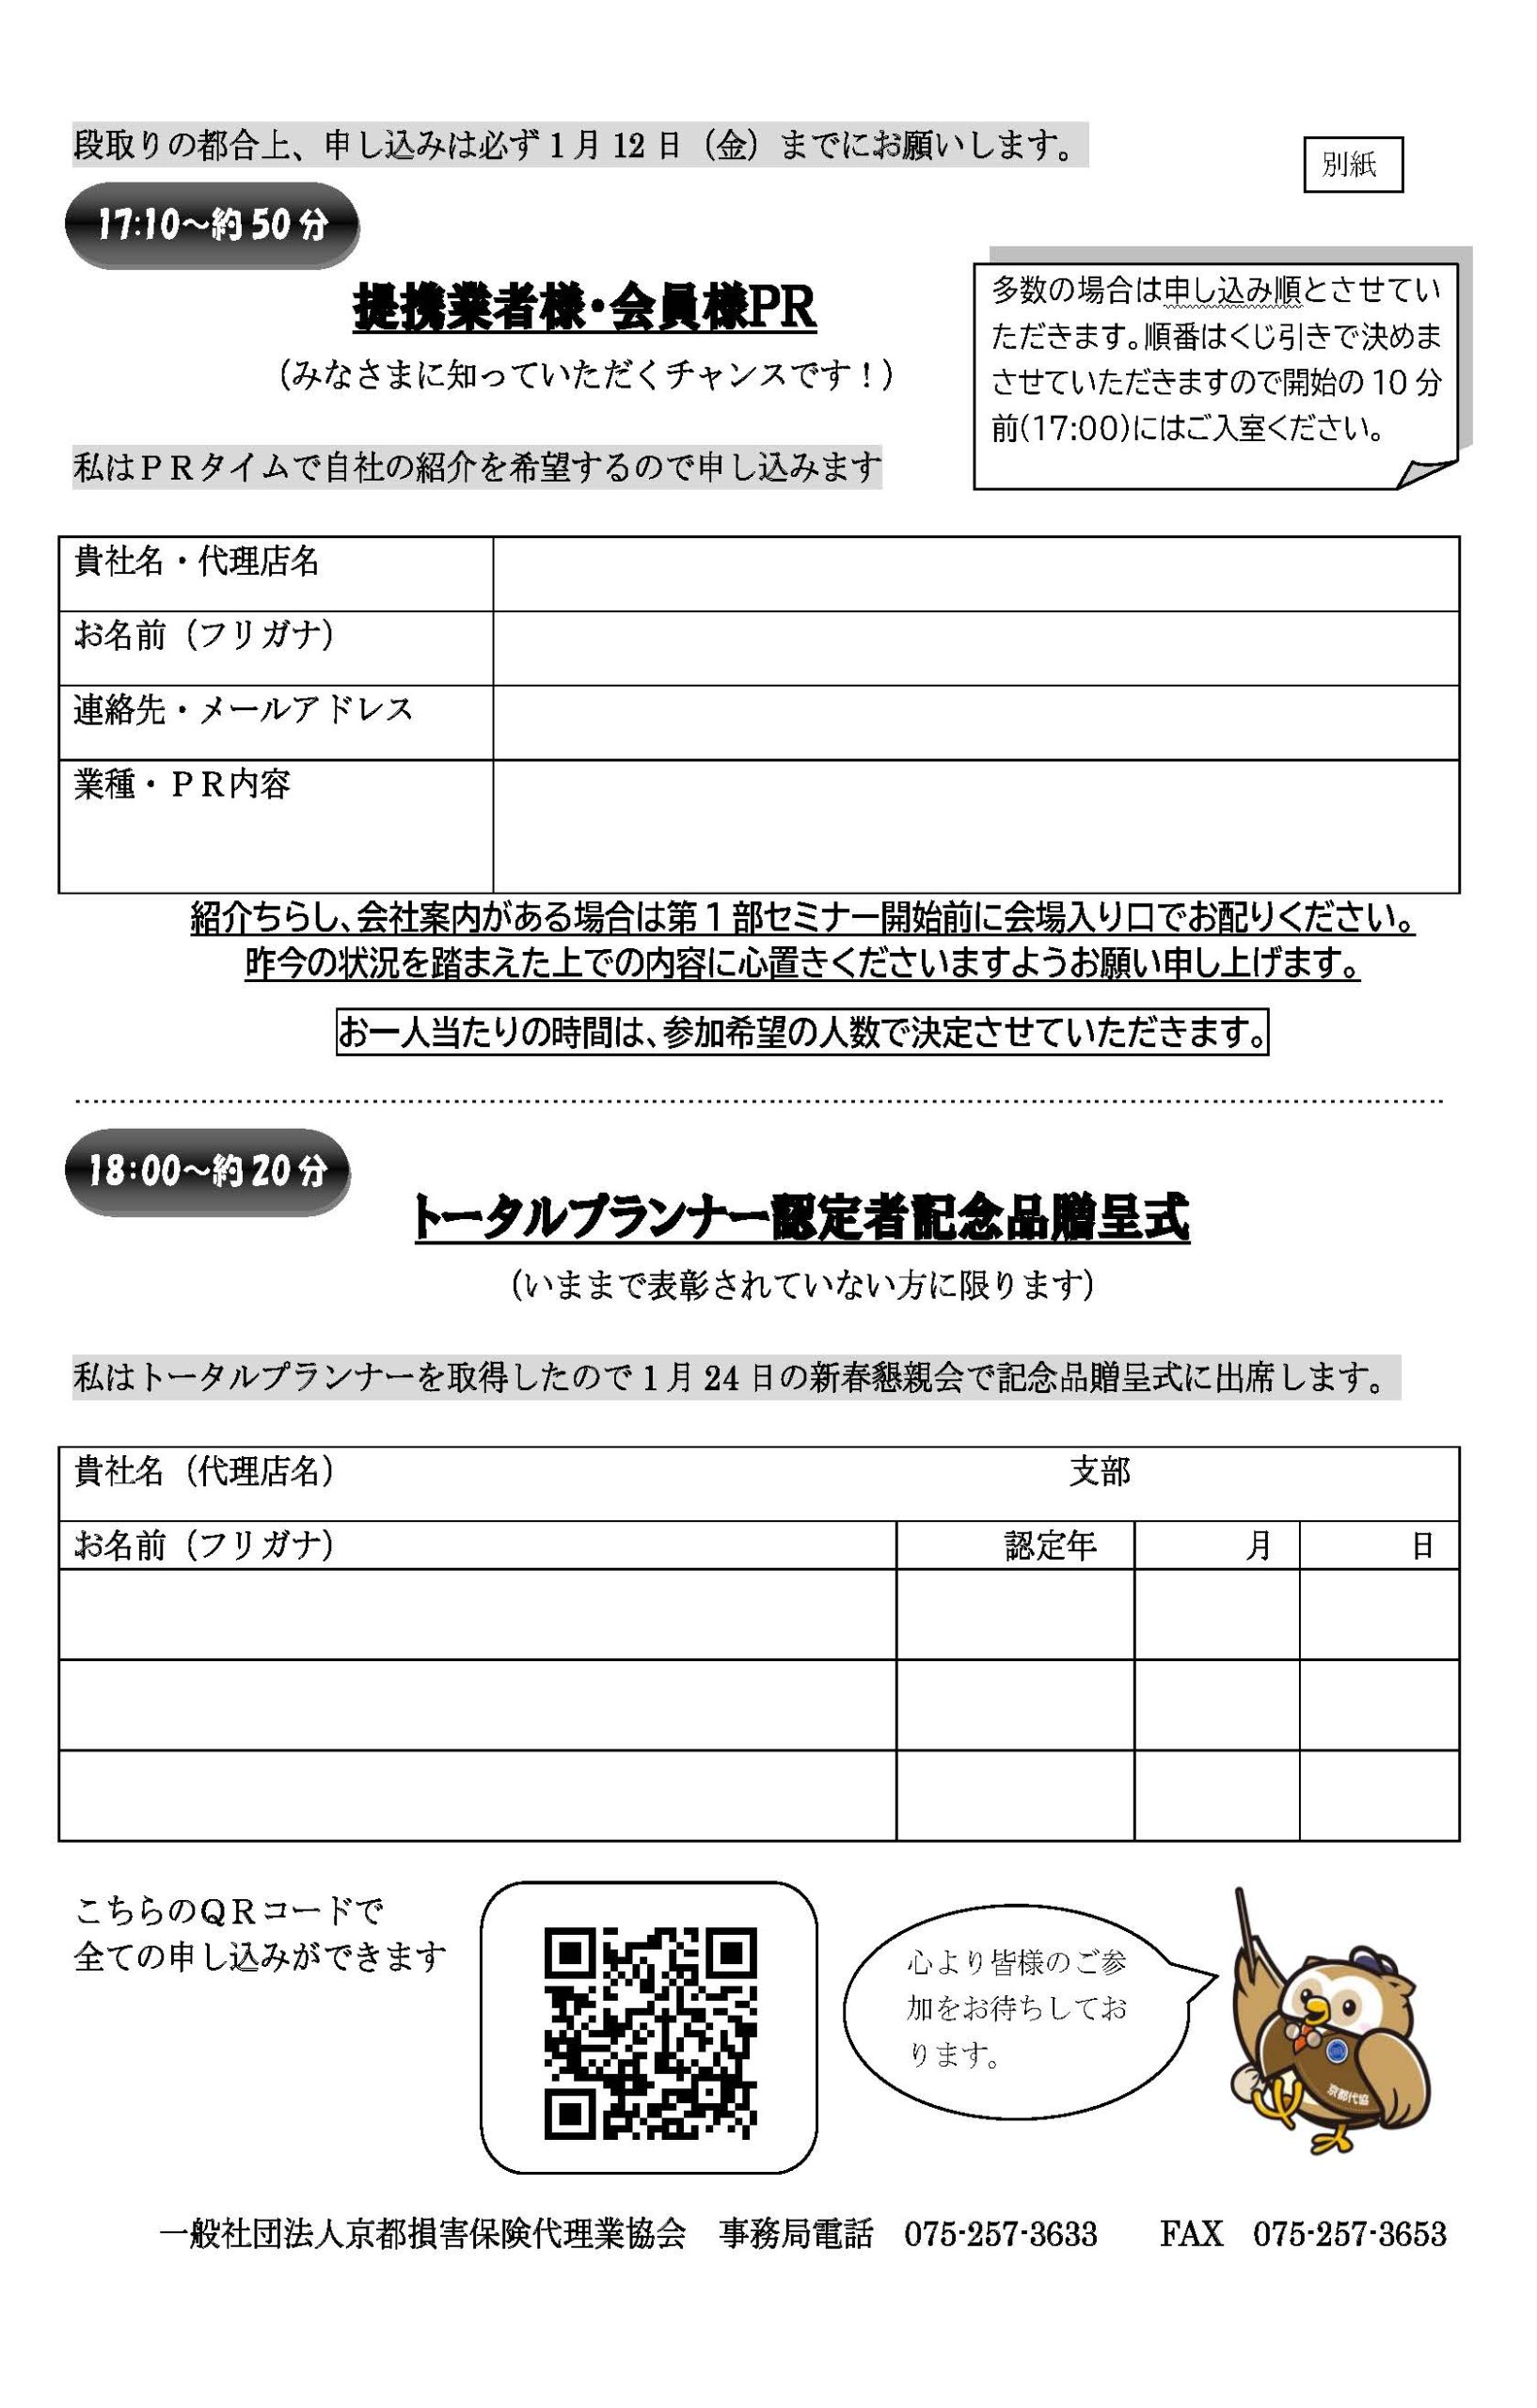 段取りの都合上、申し込みは必ず1月12日（金）までにお願いします。
別紙
17:10～約50分
提携業者様・会員様PR
（みなさまに知っていただくチャンスです！）
多数の場合は申し込み順とさせてい
ただきます。順番はくじ引きで決めま
させていただきますので開始の10分
前(17:00)にはご入室ください。
私はＰＲタイムで自社の紹介を希望するので申し込みます
貴社名・代理店名
お名前（フリガナ）
連絡先・メールアドレス
業種・ＰＲ内容
紹介ちらし、会社案内がある場合は第1部セミナー開始前に会場入り口でお配りください。
昨今の状況を踏まえた上での内容に心置きくださいますようお願い申し上げます。
お一人当たりの時間は、参加希望の人数で決定させていただきます。
18:00～約20分
トータルプランナー認定者記念品贈呈式
（いままで表彰されていない方に限ります）
私はトータルプランナーを取得したので1月24日の新春懇親会で記念品贈呈式に出席します。
貴社名（代理店名）　支部
お名前（フリガナ）　認定年　月　日
こちらのＱＲコードで
全ての申し込みができます
心より皆様のご参
加をお待ちしてお
ります。
京都代協
一般社団法人京都損害保険代理業協会　事務局電話　075-257-3633　FAX　075-257-3653